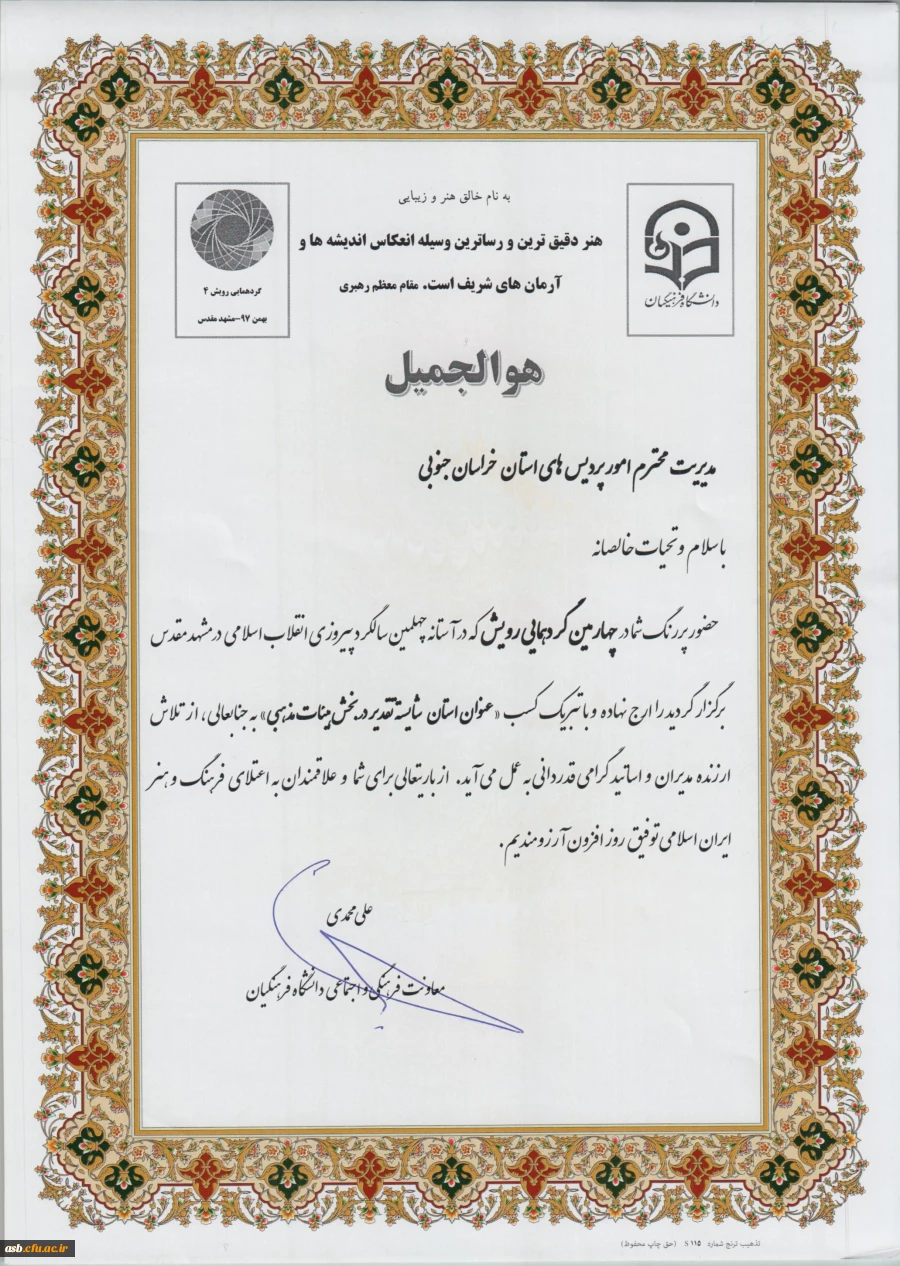 به نام خالق هنر و زیبایی
هنر دقیق ترین و رساترین وسیله انعکاس اندیشه ها و
آرمان های شریف است. مقام معظم رهبری
دانشگاه فرهنگیان
گردهمایی رویش ۴
بهمن ۹۷-مشهد مقدس
هوالجمیل
مدیریت محترم امور پردیس های استان خراسان جنوبی
با سلام و تحیات خالصانه
حضور پررنگ شما در چهارمین گردهمایی رویش که در آستانه چهلمین سالگرد پیروزی انقلاب اسلامی در مشهد مقدس
برگزار گردید را ارج نهاده و با تبریک کسب «عنوان استان شایسته تقدیر در بخش هیئات مذهبی» به جنابعالی، از تلاش
ارزنده مدیران و اساتید گرامی قدردانی به عمل می آید. از باریتعالی برای شما و علاقمندان به اعتلای فرهنگ و هنر
ایران اسلامی توفیق روز افزون آرزومندیم.
علی محمدی
معاونت فرهنگی و اجتماعی دانشگاه فرهنگیان
تذهیب ترنج شماره ۱۱۵ S (حق چاپ محفوظ)
asb.cfu.ac.ir